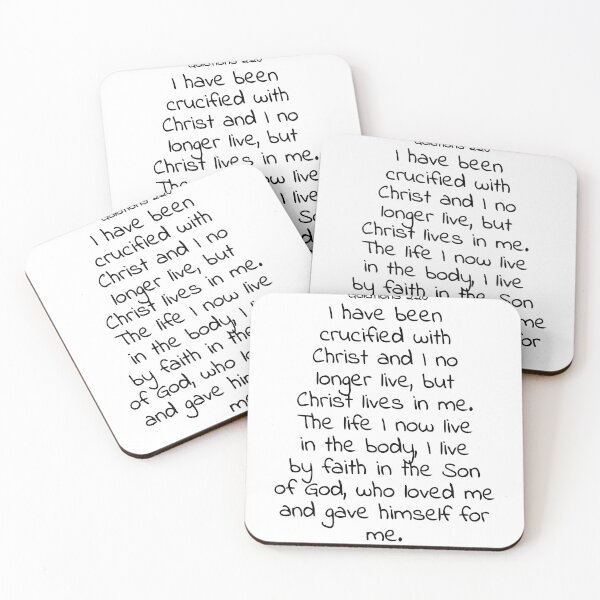 I have been
crucified with
Christ and I no
longer live, but
Christ lives in me.
The live
I live
I have been
crucified with
Christ and I no
longer live, but
Christ lives in me.
The life I now live
in the body, I live
by faith in the Son
me
for
I have been
crucified with
Christ and I no
longer live, but
Christ lives in me.
The life I now live
in the body, I
by faith in the
of God, who
and gave
I have been
crucified with
Christ and I no
longer live, but
Christ lives in me.
The life I now live
in the body, I live
by faith in the Son
of God, who loved me
and gave himself for
me.